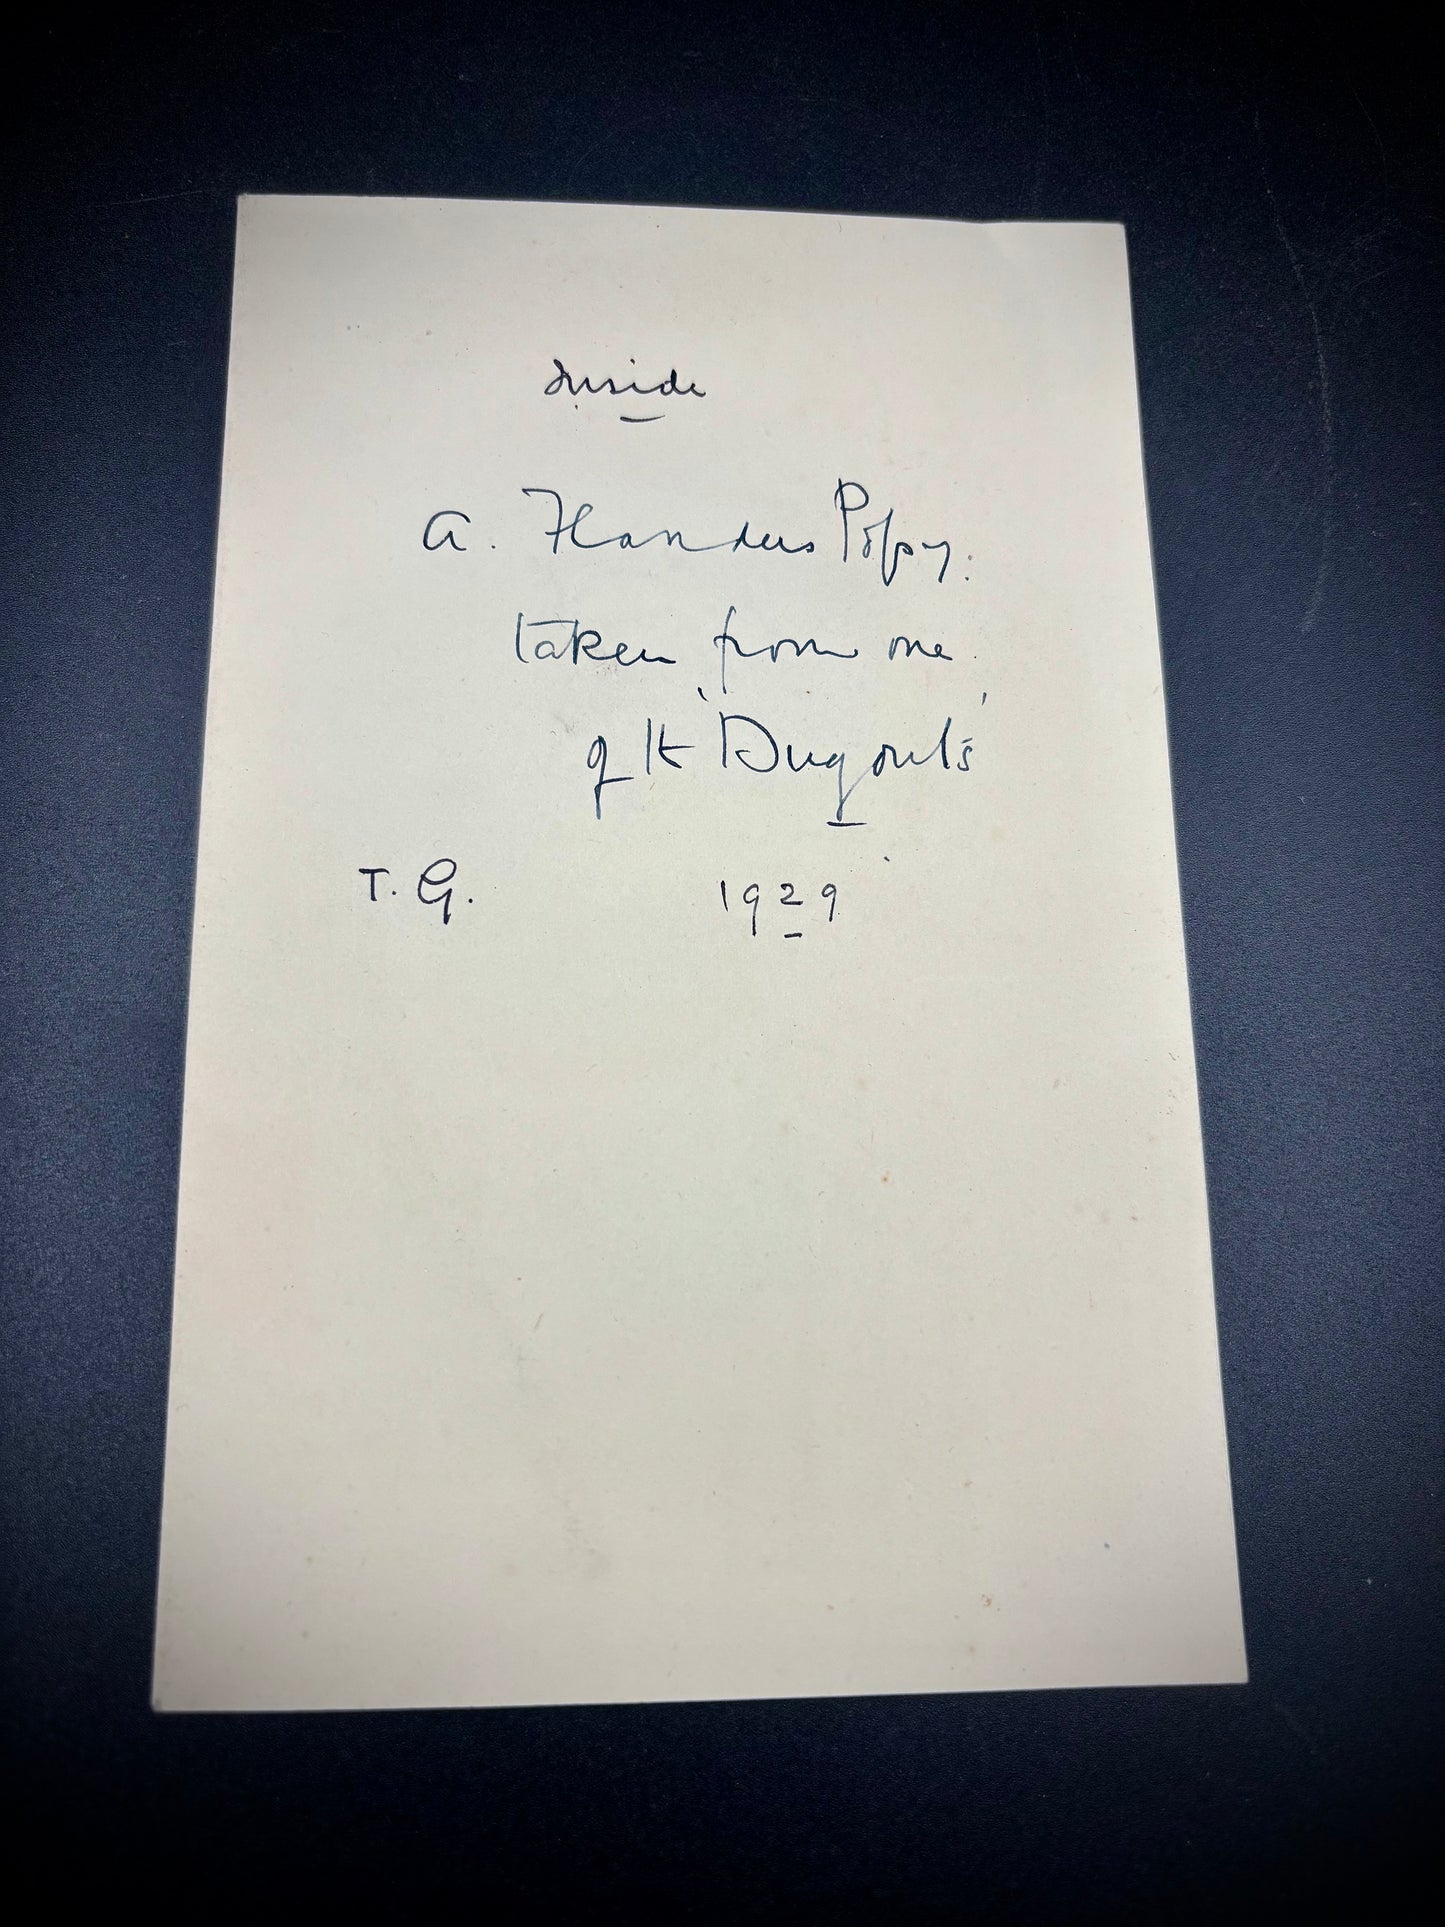 Inside
A. Flanders Poppy.
taken from one
of the 'Dugouts'
T. G. 1929